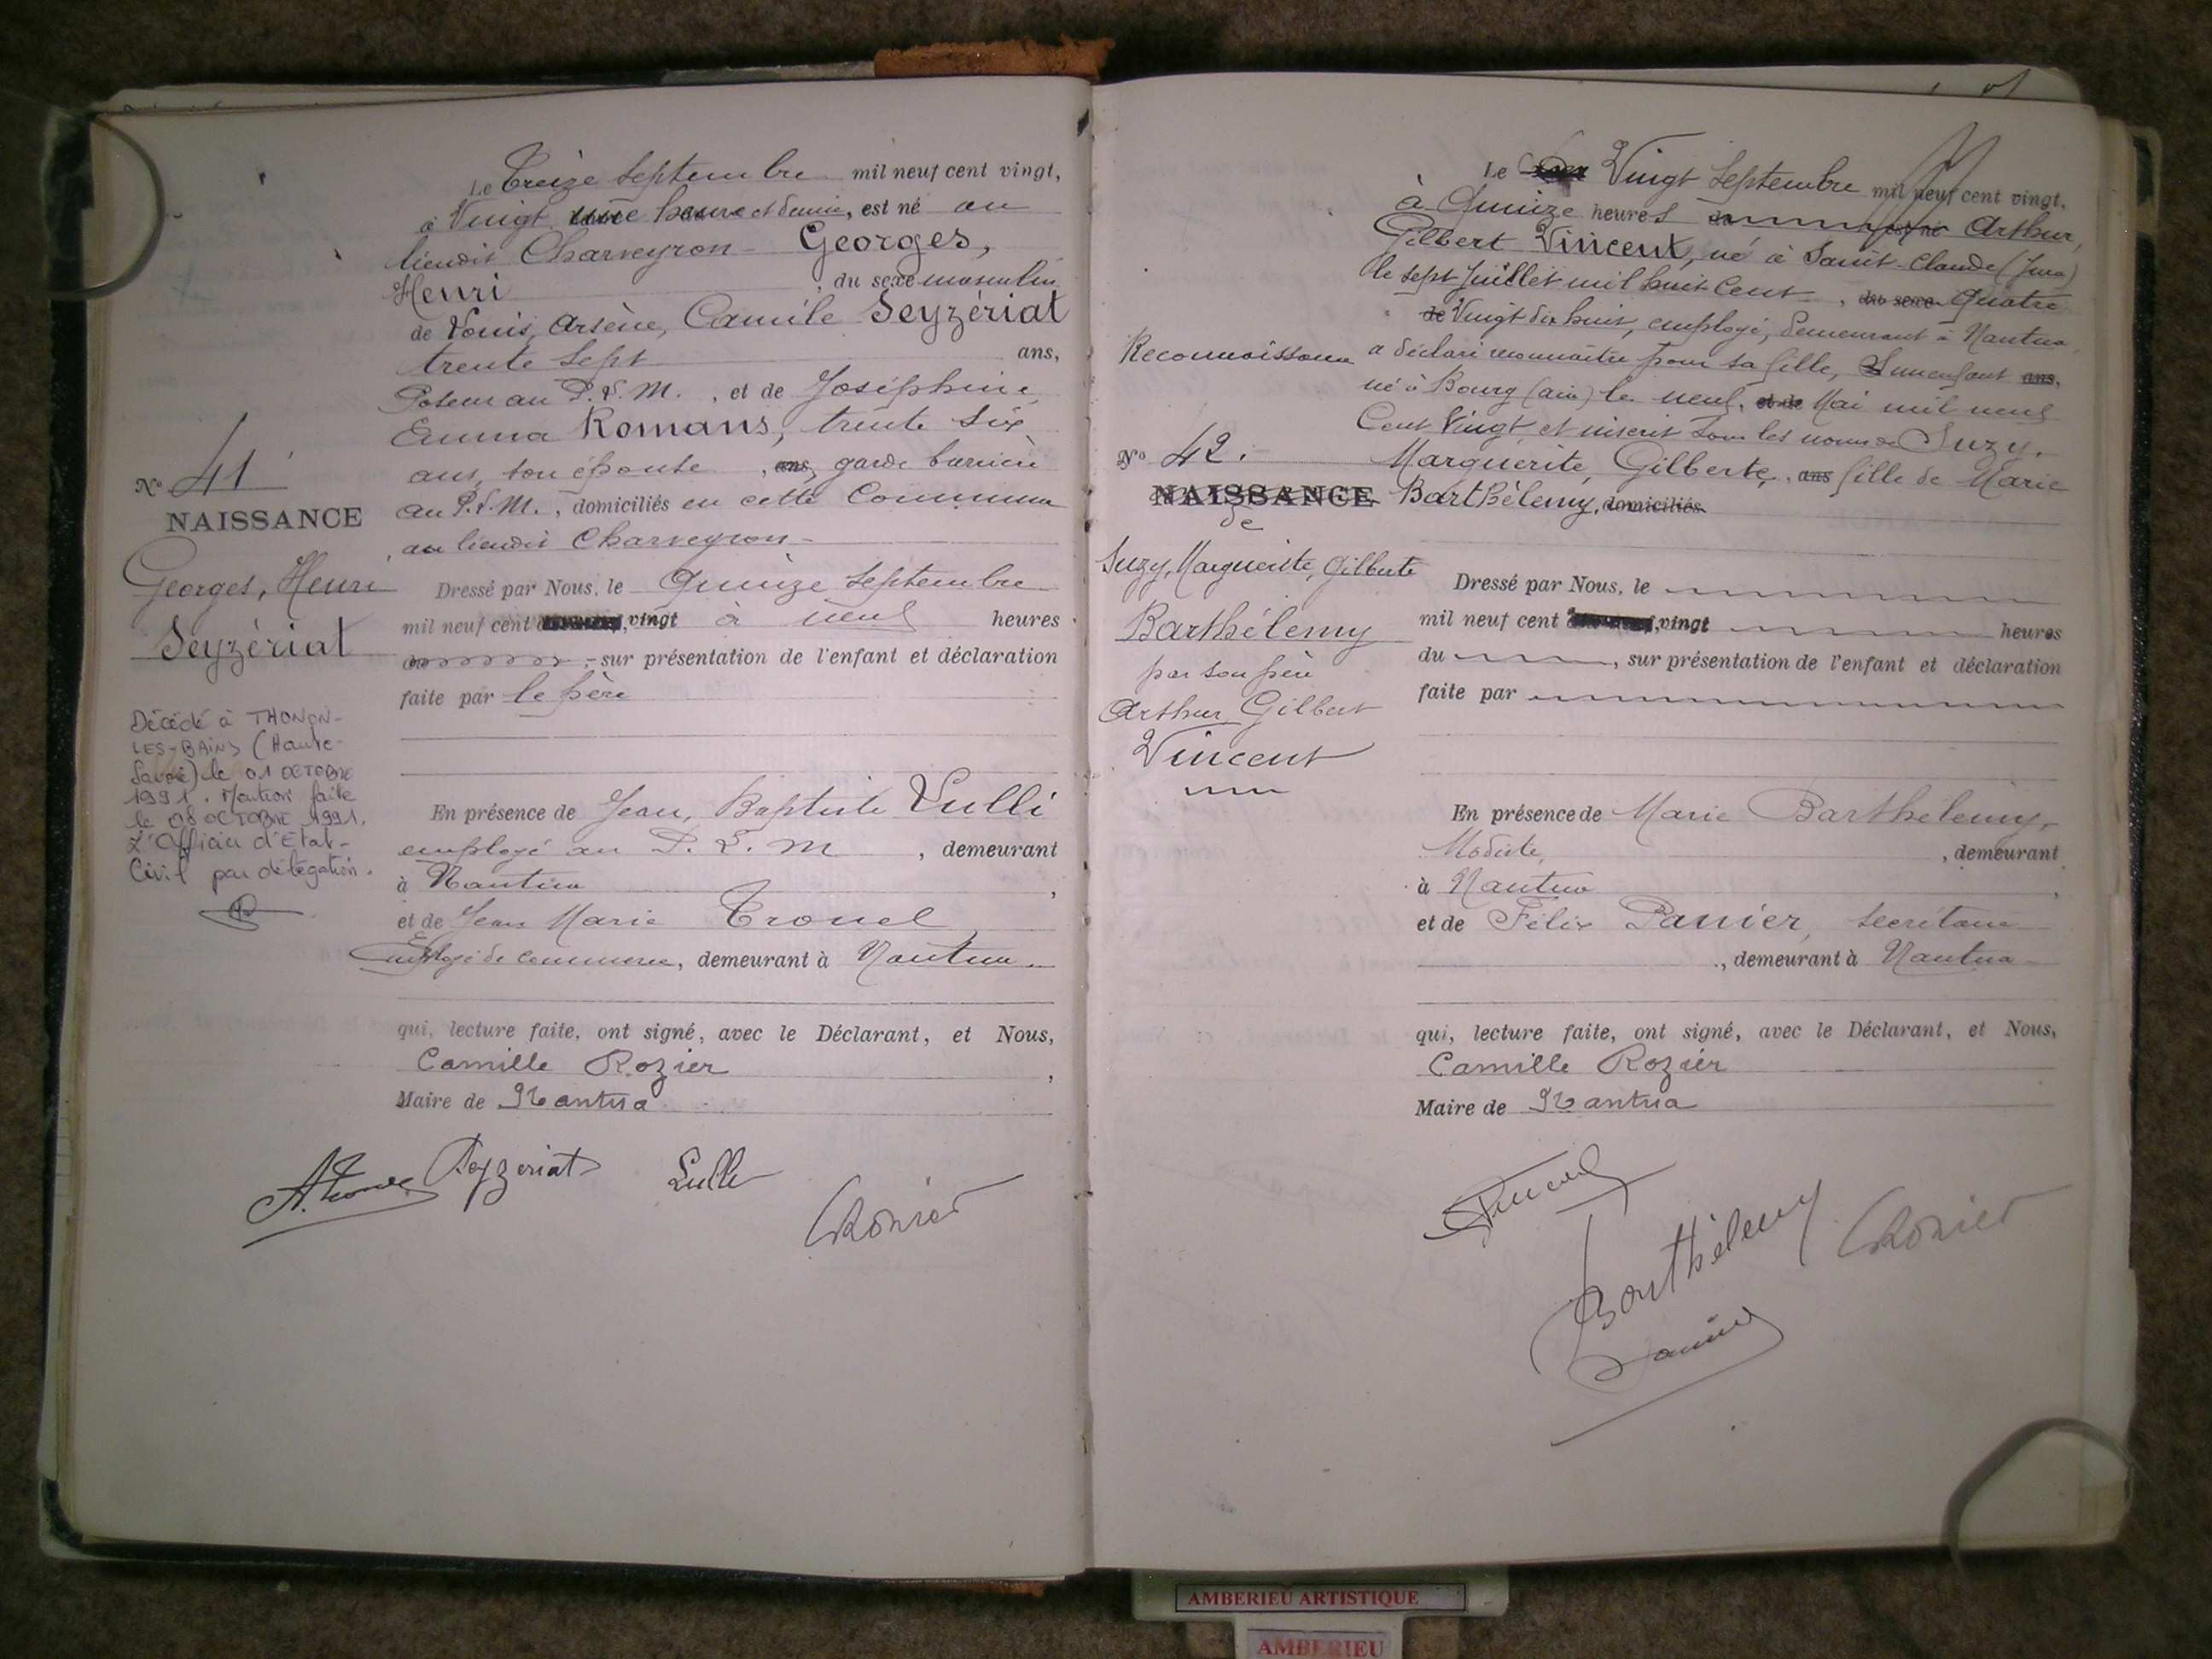 Le Treize Septembre mil neuf cent vingt,
à Vingt une heure et demie, est né au
lieudit Charveyron Georges,
Henri, du sexe masculin
de Louis, Arsène, Camille Seyzériat
trente sept ans,
Poseur au P.L.M., et de Joséphine,
Emma Romans, trente six
ans, son épouse, ans, garde barrière
au P.L.M., domiciliés en cette Commune
au lieudit Charveyron
No 41
NAISSANCE
Georges, Henri
Seyzériat
Dressé par Nous, le Quinze Septembre
mil neuf cent vingt à neuf heures
sur présentation de l'enfant et déclaration
faite par le père
Décédé à THONON-
LES-BAINS (Haute-
Savoie) le 01 OCTOBRE
1991. Mention faite
le 08 OCTOBRE 1991.
L'Officier d'Etat-
Civil par délégation.
En présence de Jean, Baptiste Lulli
employé au P.L.M, demeurant
à Nantua,
et de Jean Marie Tronel
Employé de commerce, demeurant à Nantua
qui, lecture faite, ont signé, avec le Déclarant, et Nous,
Camille Rozier,
Maire de Nantua
Seyzeriat Lulli
CRozier
Le Vingt Septembre mil neuf cent vingt,
à Quinze heures est né Arthur,
Gilbert Vincent, né à Saint-Claude (Jura)
le sept Juillet mil huit Cent, du sexe Quatre
de Vingt dix huit, employé, demeurant à Nantua
a déclaré reconnaître pour sa fille, un enfant ans,
né à Bourg (ain) le neuf, et de Mai mil neuf
Cent Vingt et inscrit sous les noms de Suzy,
Marguerite, Gilberte, ans fille de Marie
Barthélemy, domiciliés
Reconnaissance
No 42.
NAISSANCE
de
Suzy, Marguerite, Gilberte
Barthélemy
par son père
Arthur Gilbert
Vincent
Dressé par Nous, le
mil neuf cent vingt heures
du, sur présentation de l'enfant et déclaration
faite par
En présence de Marie Barthélemy,
Modiste, demeurant
à Nantua,
et de Félix Panier, secrétaire
, demeurant à Nantua
qui, lecture faite, ont signé, avec le Déclarant, et Nous,
Camille Rozier
Maire de Nantua
Barthélemy CRozier
Panier
AMBERIEU ARTISTIQUE
AMBERIEU